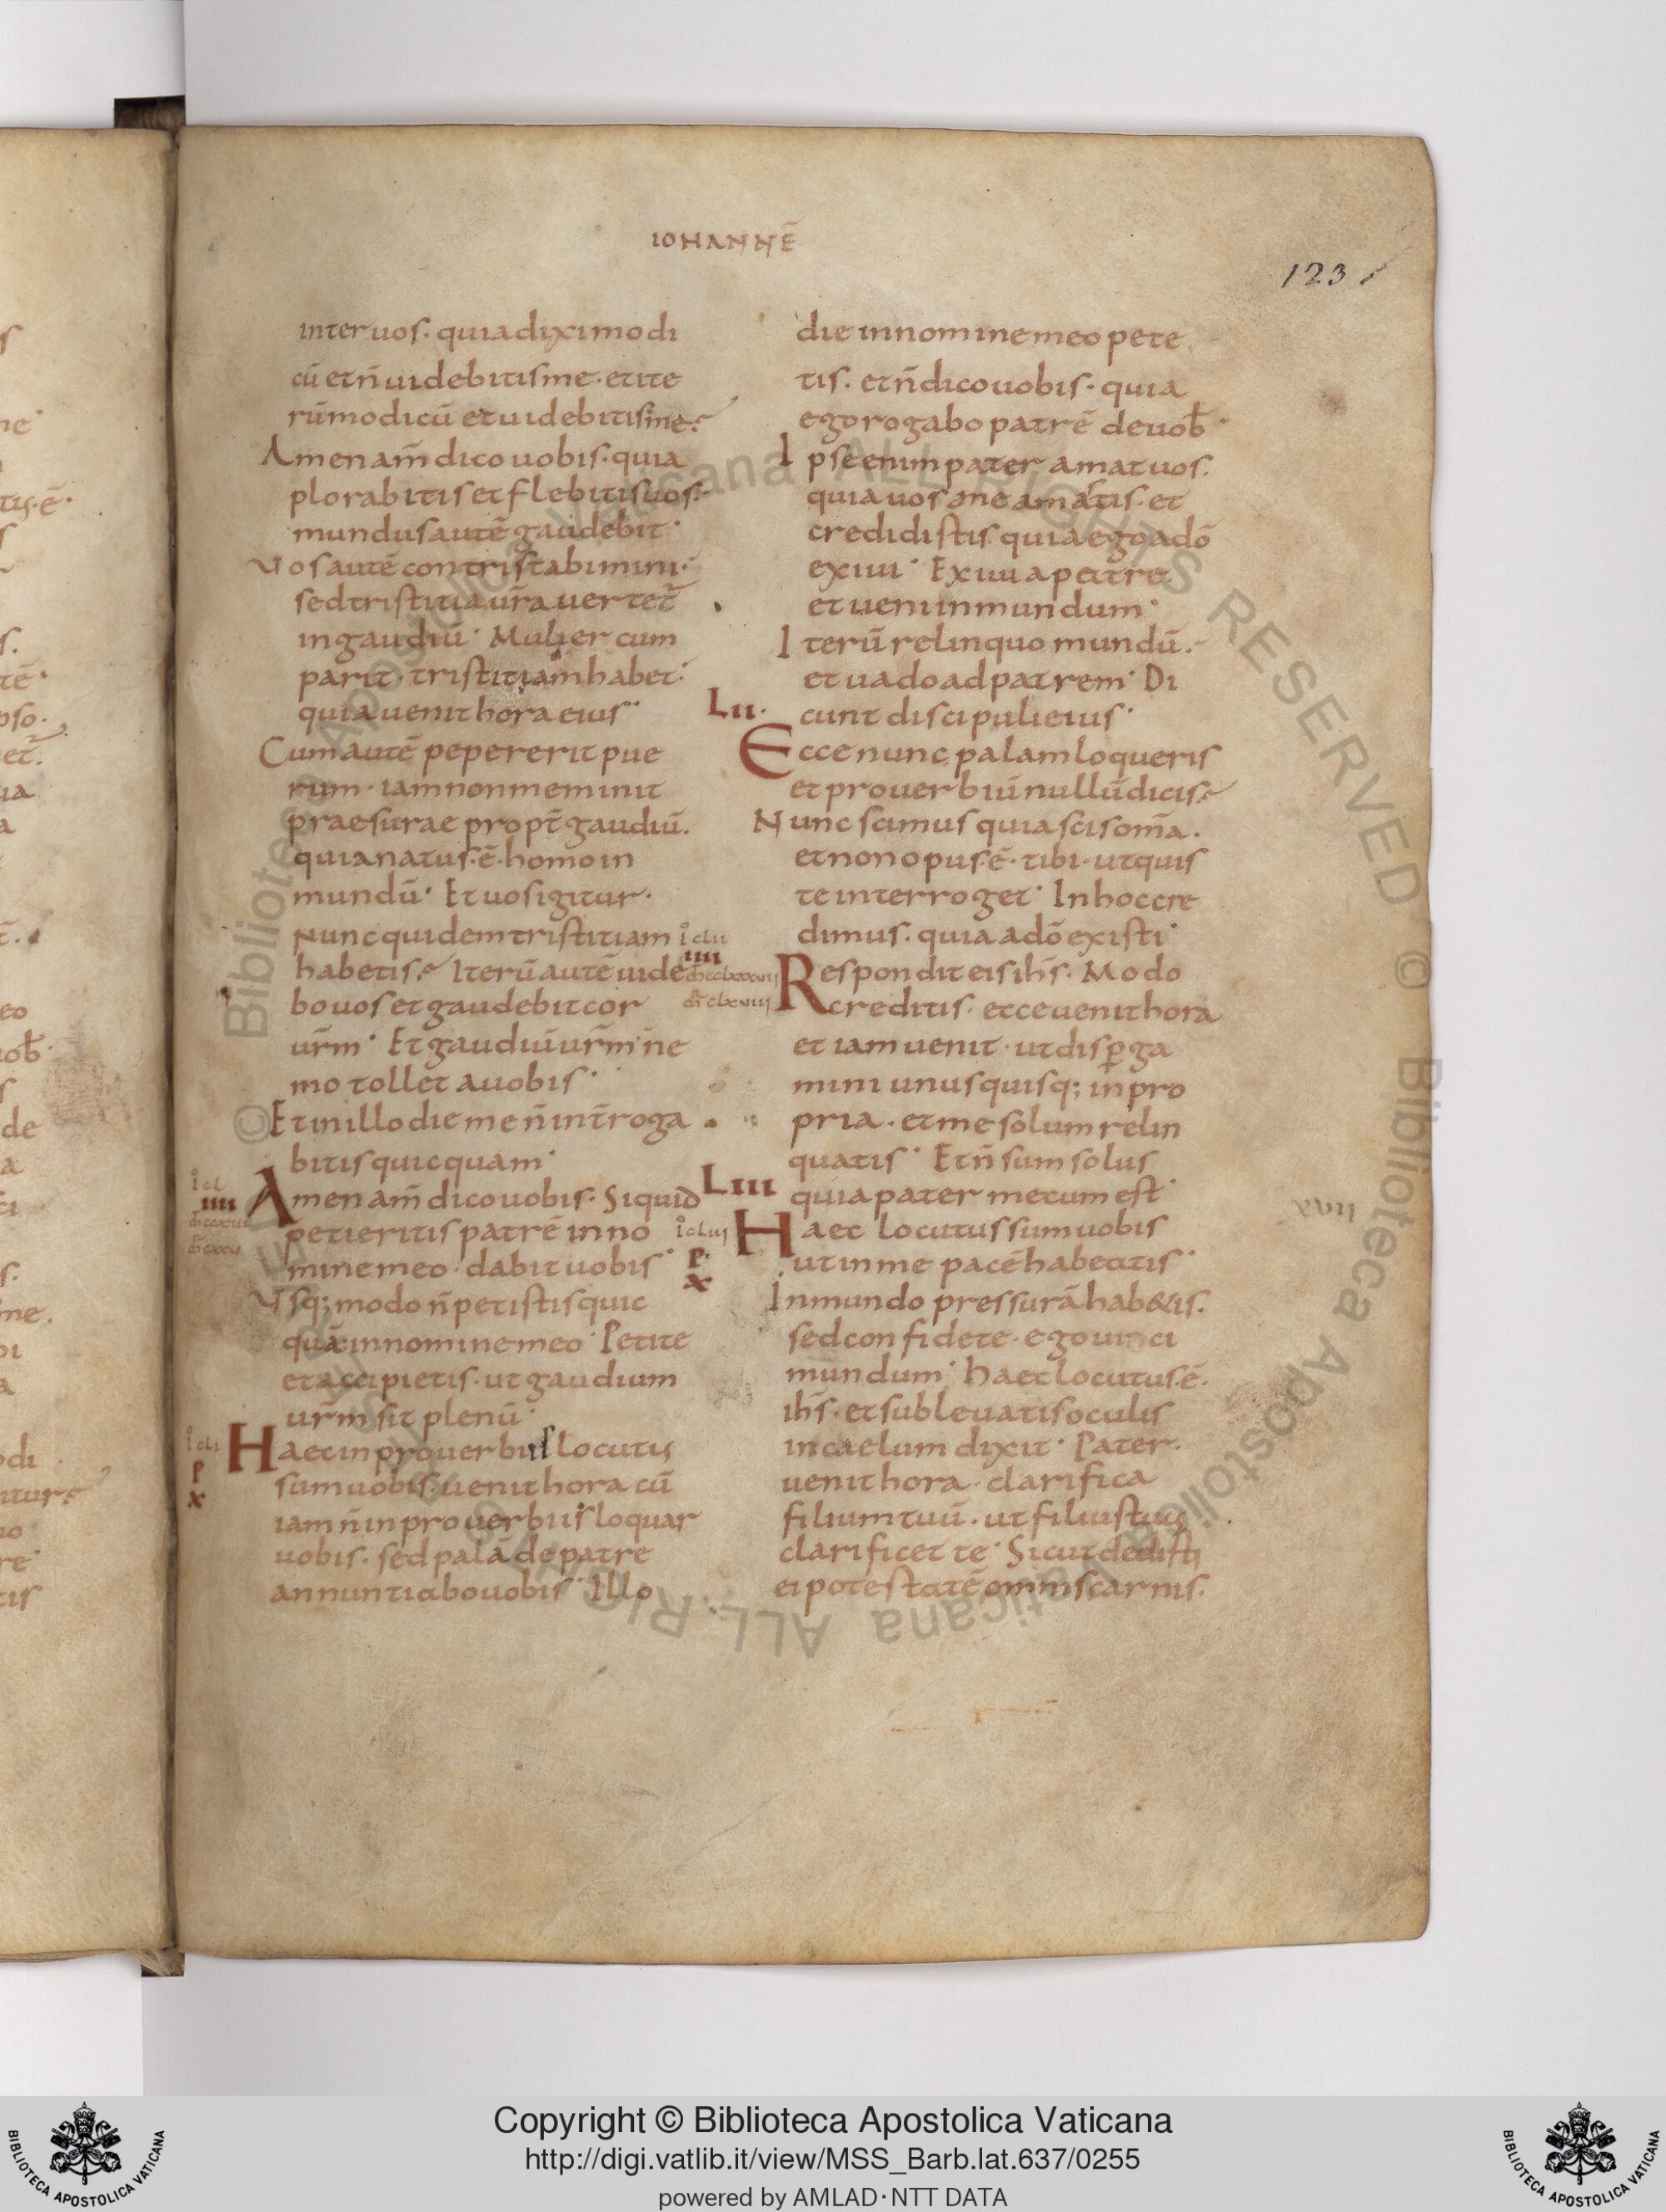 IOHANNĒ
123
inter uos. quia dixi modi
cū et n̄ uidebitis me. et ite
rū modicū et uidebitis me?
Amen am̄ dico uobis. quia
plorabitis et flebitis uos.
mundus autē gaudebit.
Vos autē contristabimini.
sed tristitia ur̄a uertet̄
in gaudiū. Mulier cum
parit. tristitiam habet.
quia uenit hora eius.
Cum autē pepererit pue
rum. iam non meminit
praesurae propt̄ gaudiū.
quia natus. ē. homo in
mundū. Et uos igitur.
Nunc quidem tristitiam
habetis. Iterū autē uide
bo uos et gaudebit cor
ur̄m. Et gaudiū ur̄m ne
mo tollet a uobis.
Et in illo die me n̄ int̄roga
bitis quicquam.
Amen am̄ dico uobis. Si quid
IIII
petieritis patrē in no
mine meo. dabit uobis.
Vsq; modo n̄ petistis quic
quā in nomine meo. Petite
et accipietis. ut gaudium
ur̄m sit plenū.
Haec in prouerbiis locutus
P
X
sum uobis. uenit hora cū
iam n̄ in prouerbiis loquar
uobis. sed palā de patre
annuntiabo uobis. Illo
die in nomine meo pete
tis. et n̄ dico uobis. quia
ego rogabo patrē de uob̄.
Ipse enim pater amat uos.
quia uos me amastis. et
credidistis quia ego a dō
exiui. Exiui a patre
et ueni in mundum.
Iterū relinquo mundū.
et uado ad patrem. Di
LII. cunt discipuli eius.
Ecce nunc palam loqueris
et prouerbiū nullū dicis.
Nunc scimus quia scis om̄a.
et non opus. ē. tibi. ut quis
te interroget. In hoc cre
dimus. quia a dō existi.
IIII
Respondit eis ih̄s. Modo
creditis. ecce uenit hora
et iam uenit. ut disꝑga
mini unusquisq; in pro
pria. et me solum relin
quatis. Et n̄ sum solus
LIII quia pater mecum est.
Haec locutus sum uobis
P
X
ut in me pacē habeatis.
In mundo pressurā hab&is.
sed confidete. ego uinci
mundum. Haec locutus. ē.
ih̄s. et subleuatis oculis
in caelum dixit. Pater.
uenit hora. clarifica
filium tuū. ut filius tuus
clarificet te. Sicut dedisti
ei potestatē omnis carnis.
© Biblioteca Apostolica Vaticana ALL RIGHTS RESERVED
Copyright © Biblioteca Apostolica Vaticana
http://digi.vatlib.it/view/MSS_Barb.lat.637/0255
powered by AMLAD·NTT DATA
BIBLIOTECA APOSTOLICA VATICANA
BIBLIOTECA APOSTOLICA VATICANA